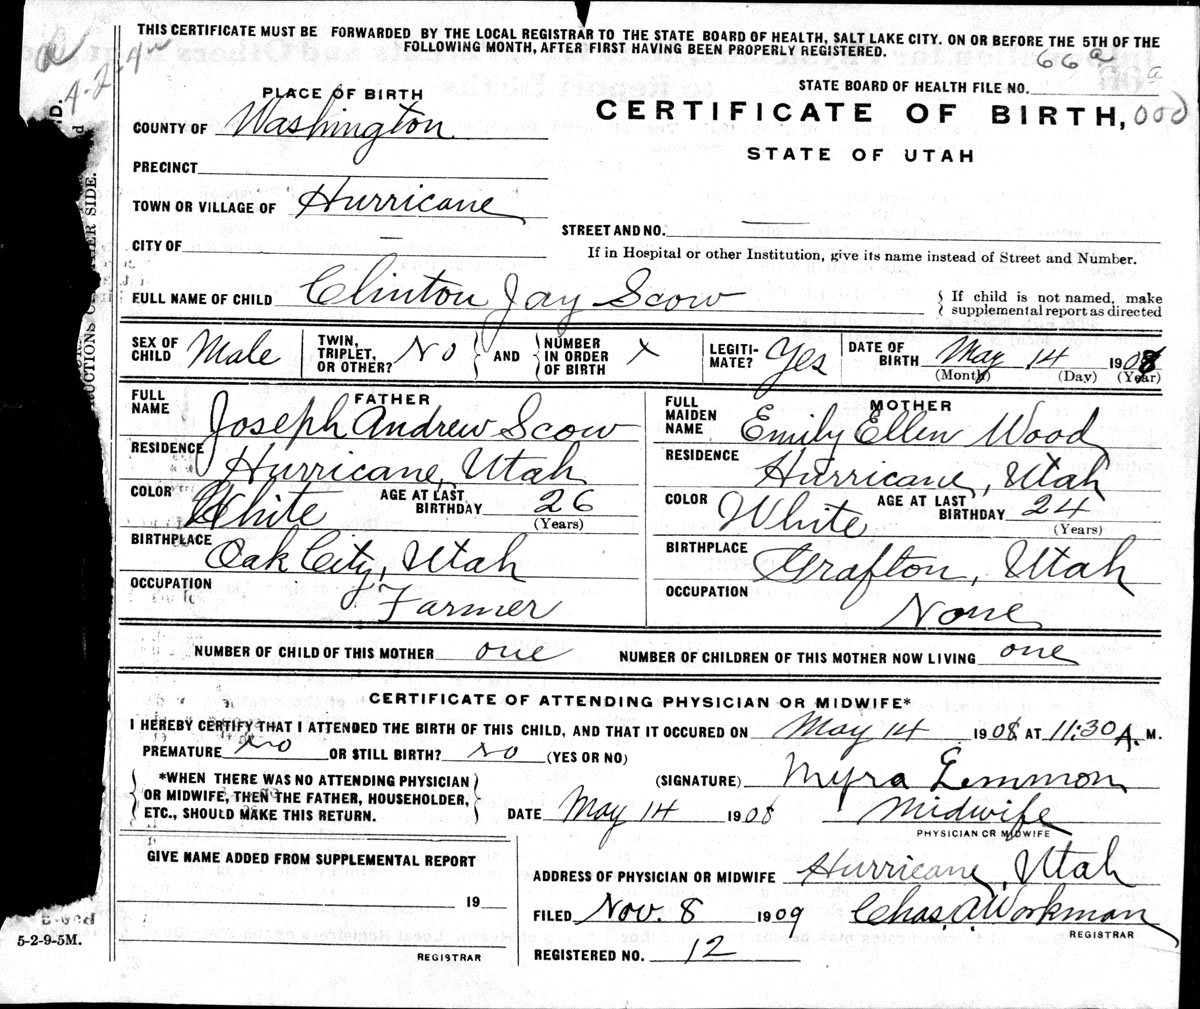 THIS CERTIFICATE MUST BE FORWARDED BY THE LOCAL REGISTRAR TO THE STATE BOARD OF HEALTH, SALT LAKE CITY. ON OR BEFORE THE 5TH OF THE
FOLLOWING MONTH, AFTER FIRST HAVING BEEN PROPERLY REGISTERED.
STATE BOARD OF HEALTH FILE NO. 66a
PLACE OF BIRTH
CERTIFICATE OF BIRTH,
COUNTY OF Washington
STATE OF UTAH
PRECINCT
TOWN OR VILLAGE OF Hurricane
STREET AND NO.
CITY OF —
If in Hospital or other Institution, give its name instead of Street and Number.
FULL NAME OF CHILD Clinton Jay Scow
{ If child is not named, make
supplemental report as directed
SEX OF CHILD Male
TWIN, TRIPLET, OR OTHER? No
AND
NUMBER IN ORDER OF BIRTH X
LEGITI-MATE? Yes
DATE OF BIRTH May 14 1908
(Month) (Day) (Year)
FATHER
FULL NAME Joseph Andrew Scow
RESIDENCE Hurricane, Utah
COLOR White AGE AT LAST BIRTHDAY 26
(Years)
BIRTHPLACE Oak City, Utah
OCCUPATION Farmer
MOTHER
FULL MAIDEN NAME Emily Ellen Wood
RESIDENCE Hurricane, Utah
COLOR White AGE AT LAST BIRTHDAY 24
(Years)
BIRTHPLACE Grafton, Utah
OCCUPATION None
NUMBER OF CHILD OF THIS MOTHER one NUMBER OF CHILDREN OF THIS MOTHER NOW LIVING one
CERTIFICATE OF ATTENDING PHYSICIAN OR MIDWIFE*
I HEREBY CERTIFY THAT I ATTENDED THE BIRTH OF THIS CHILD, AND THAT IT OCCURED ON May 14 1908 AT 11:30 A. M.
PREMATURE No OR STILL BIRTH? No (YES OR NO)
*WHEN THERE WAS NO ATTENDING PHYSICIAN
OR MIDWIFE, THEN THE FATHER, HOUSEHOLDER,
ETC., SHOULD MAKE THIS RETURN.
(SIGNATURE) Myra Lemmon
DATE May 14 1908 Midwife
PHYSICIAN OR MIDWIFE
GIVE NAME ADDED FROM SUPPLEMENTAL REPORT
19
REGISTRAR
ADDRESS OF PHYSICIAN OR MIDWIFE Hurricane, Utah
FILED Nov. 8 1909 Chas. A. Workman
REGISTRAR
REGISTERED NO. 12
5-2-9-5M.